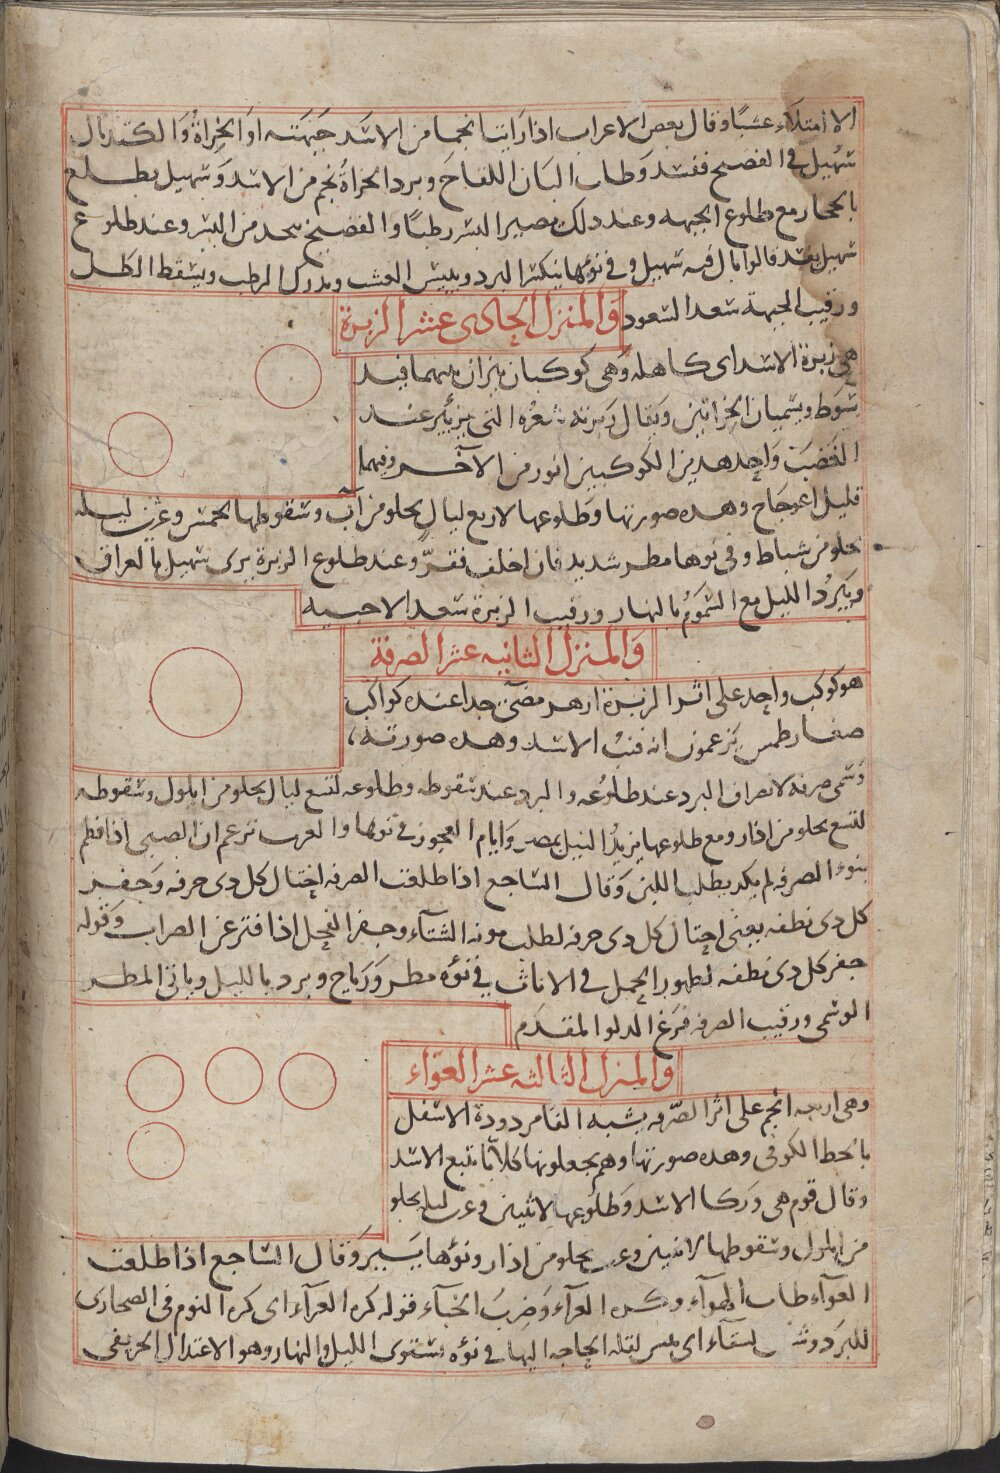 الا امتلاء عشبا وقال بعض الاعراب اذا راينا نجما من الاسد جبهته او الخراة والكتد بال
سهيل في الفضيخ ففسد وطاب البان اللقاح وبرد الخراة نجم من الاسد وسهيل يطلع
بالحجاز مع طلوع الجبهه وعند ذلك يصير البسر رطبا والفضيخ يتخذ من البسر وعند طلوع
سهيل يفسد قالوا بال فيه سهيل وفي نوئها ينكسر البرد وييبس العشب ويدرك الرطب ويسقط الطل
ورقيب الجبهة سعد السعود والمنزل الحادى عشر الزبرة
هي زبرة الاسد اى كاهله وهى كوكبان نيران بينهما قيد
سوط ويسميان الخراتين ويقال زبرته شعره التى يزبئر عند
الغضب واحد هذين الكوكبين انور من الآخر وفيهما
قليل اعوجاج وهذه صورتها وطلوعها لاربع ليال يخلو من آب وسقوطها لخمس وعشرين ليله
يخلو من شباط وفي نوئها مطر شديد فان اخلف فقرّ وعند طلوع الزبرة يرى سهيل بالعراق
ويبرد الليل مع السموم بالنهار ورقيب الزبرة سعد الاخبيه
والمنزل الثانيه عشر الصرفة
هو كوكب واحد على اثر الزبرة ازهر مضئ جدا عنده كواكب
صغار طمس يزعمون انه قنب الاسد وهذه صورته،
وسمى صرفه لانصراف البرد عند طلوعه والبرد عند سقوطه وطلوعه لتسع ليال يخلو من ايلول وسقوطه
لتسع يخلو من اذار ومع طلوعها يزيد النيل بمصر وايام العجوز في نوئها والعرب تزعم ان الصبى اذا فطم
بنوء الصرفه لم يكد يطلب اللبن وقال الساجع اذا طلعت الصرفه احتال كل ذى حرفه وجفر
كل ذى نطفه يعنى احتال كل ذى حرفه لطلب مونه الشتآء وجفر الفحل اذا فتر عن الضراب وقوله
جفر كل ذى نطفه لظهور الحمل في الاناث في نوئه مطر ورياح وبرد بالليل وياتى المطر
الوسمى ورقيب الصرفه فرغ الدلو المقدم
والمنزل الثالثه عشر العوّاء
وهى اربعه انجم على اثر الصرفه يشبه الفا مردودة الاسفل
بالخط الكوفى وهذه صورتها وهم يجعلونها كلابًا يتبع الاسد
وقال قوم هى وركا الاسد وطلوعها لاثنين وعشرين ليله يخلو
من ايلول وسقوطها لاثنين وعشرين يخلو من اذار ونوئها يسير وقال الساجع اذا طلعت
العوآء طاب الهوآء وكره العرآء وضرب الخبآء قوله كره العرآء اى كره النوم فى الصحارى
للبرد السقآء اى يبس لقله الحاجه اليها في نوئه يستوى الليل والنهار وهو الاعتدال الخريفى